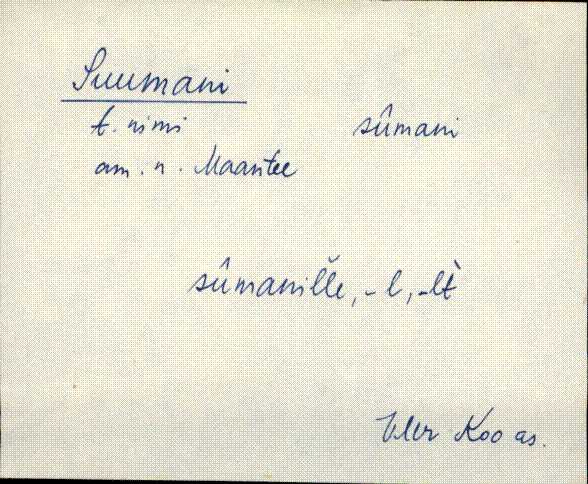 Suumani
t. nimi sûmani
am. n. Maantee
sûmanil̆l̆e, -l, -lt̀
Vler Koo as.